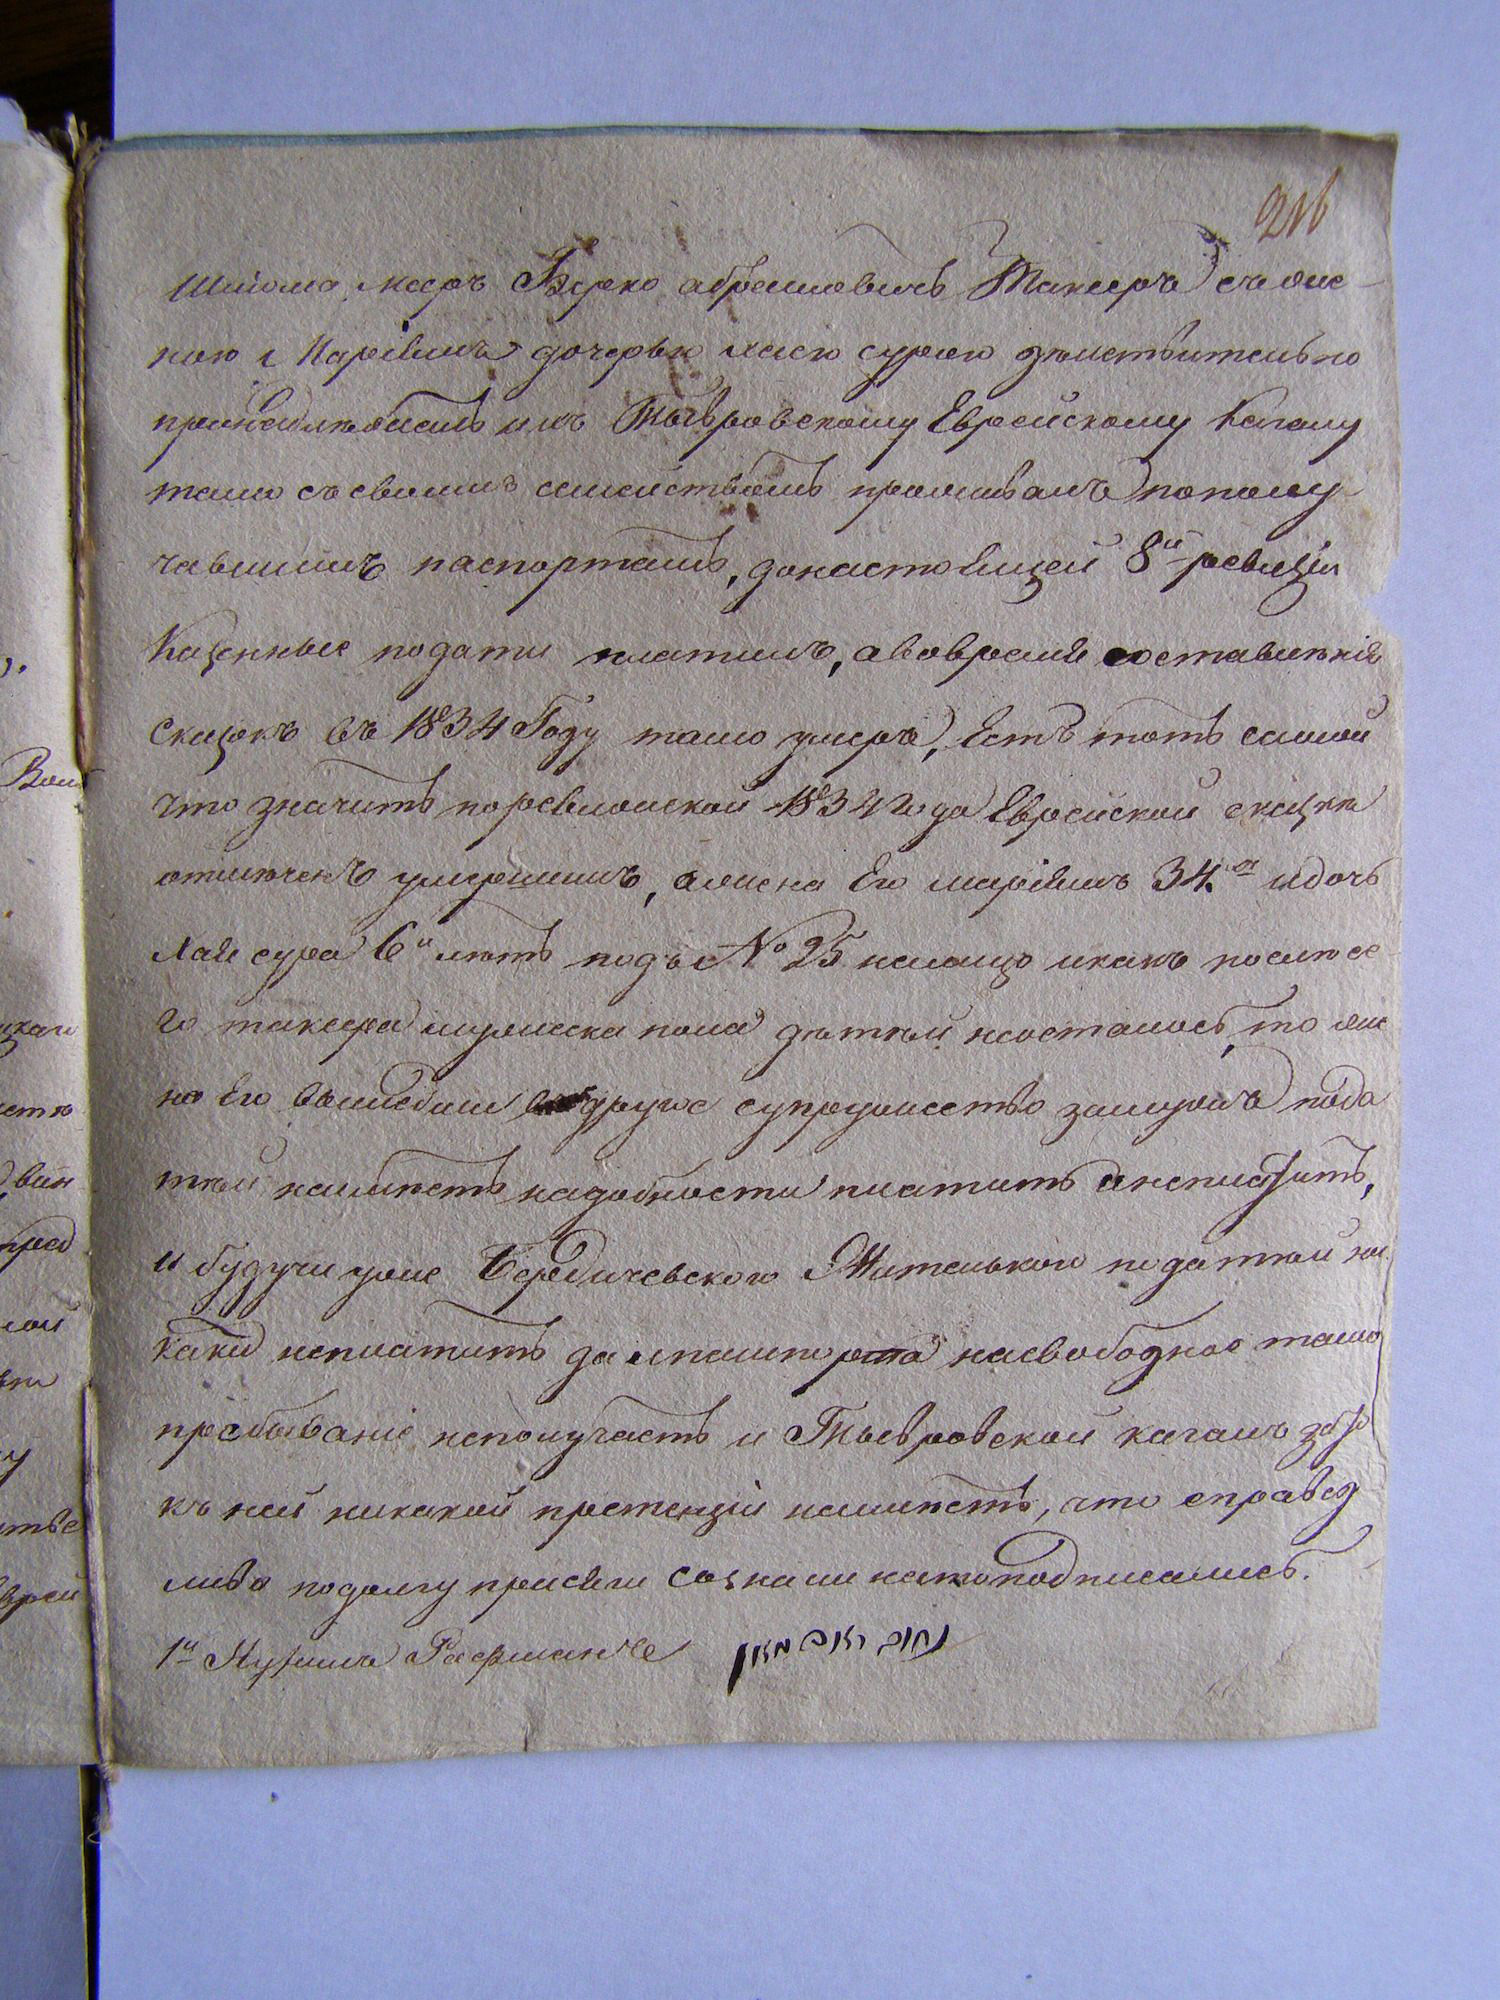 216
Шліома меръ Берко абрамовичъ Таксеръ съ жен-
ною г Маріямъ дочерью хаею сурою действительно
принадлежалъ къ Тывровскому Еврейскому Кагалу
тамо съ своимъ семействомъ проживалъ пополу-
чавшимъ паспортамъ, донастоящей 8й ревизіи
Казенные подати платилъ, авовремя составленія
Сказокъ въ 1834 Году тамо умеръ, Есть тотъ самой
что значитъ поревизской 1834 года Еврейской сказки
отмеченъ умершимъ, ажена Его маріямъ 34. идочь
Хая сура 6й летъ подъ № 25 налицо икакъ после се-
го таксера мужеска пола детей неосталось, то же-
на Его вышедши вдругое супружество замужъ пода
тей неимѣетъ надобности платить анеплатитъ,
и будучи уже Бердичевскою Жителькою податей ни
какихъ неплатитъ да ипашпорта насвободное тамо
пребываніе неполучаетъ и Тывровской кагалъ затѣ
къ ней никакой претензіи неимѣетъ, что справед
ливо подолгу присяги Сознали натоподписались.
1й Нухимъ Рафманъ